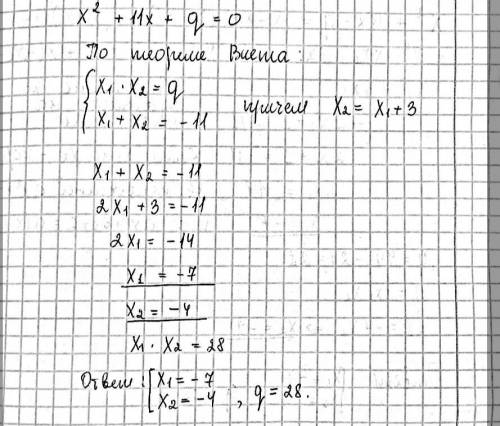 x² + 11x + q = 0
По теореме Виета:
{ x₁ · x₂ = q
x₁ + x₂ = -11 причем x₂ = x₁ + 3
x₁ + x₂ = -11
2x₁ + 3 = -11
2x₁ = -14
x₁ = -7
x₂ = -4
x₁ · x₂ = 28
Ответ: [ x₁ = -7
x₂ = -4 , q = 28.